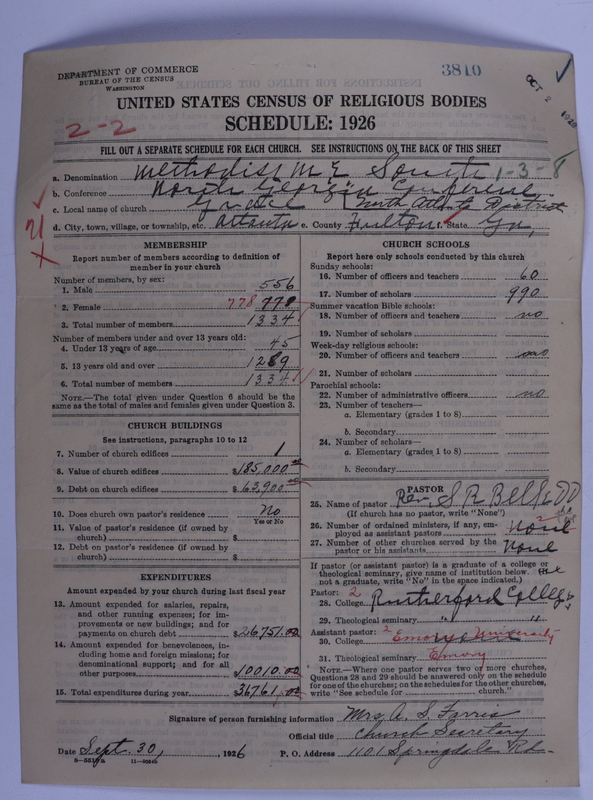 DEPARTMENT OF COMMERCE
BUREAU OF THE CENSUS
WASHINGTON
3810
OCT 2 1926
UNITED STATES CENSUS OF RELIGIOUS BODIES
2-2
SCHEDULE: 1926
FILL OUT A SEPARATE SCHEDULE FOR EACH CHURCH. SEE INSTRUCTIONS ON THE BACK OF THIS SHEET
a. Denomination Methodist M E South 1-3-8
b. Conference North Georgia Conference
c. Local name of church Grace (North Atlanta District
d. City, town, village, or township, etc. Atlanta e. County Fulton f. State Ga,
MEMBERSHIP
Report number of members according to definition of
member in your church
Number of members, by sex:
1. Male 556
2. Female 778 778
3. Total number of members 1334
Number of members under and over 13 years old:
4. Under 13 years of age 45
5. 13 years old and over 1289
6. Total number of members 1334
NOTE.—The total given under Question 6 should be the
same as the total of males and females given under Question 3.
CHURCH BUILDINGS
See instructions, paragraphs 10 to 12
7. Number of church edifices 1
8. Value of church edifices $185,000.00
9. Debt on church edifices $63,900.00
10. Does church own pastor's residence No
Yes or No
11. Value of pastor's residence (if owned by
church) $
12. Debt on pastor's residence (if owned by
church) $
EXPENDITURES
Amount expended by your church during last fiscal year
13. Amount expended for salaries, repairs,
and other running expenses; for im-
provements or new buildings; and for
payments on church debt $26751.00
14. Amount expended for benevolences, in-
cluding home and foreign missions; for
denominational support; and for all
other purposes 10010.00
15. Total expenditures during year $36761.00
CHURCH SCHOOLS
Report here only schools conducted by this church
Sunday schools:
16. Number of officers and teachers 60
17. Number of scholars 990
Summer vacation Bible schools:
18. Number of officers and teachers no
19. Number of scholars
Week-day religious schools:
20. Number of officers and teachers no
21. Number of scholars
Parochial schools:
22. Number of administrative officers no
23. Number of teachers—
a. Elementary (grades 1 to 8)
b. Secondary
24. Number of scholars—
a. Elementary (grades 1 to 8)
b. Secondary
PASTOR
25. Name of pastor Rev. S R Belk DD
(If church has no pastor, write "None")
26. Number of ordained ministers, if any, em-
ployed as assistant pastors None
27. Number of other churches served by the
pastor or his assistants None
If pastor (or assistant pastor) is a graduate of a college or
theological seminary, give name of institution below. (If
not a graduate, write "No" in the space indicated.)
Pastor: 2
28. College Rutherford College
29. Theological seminary " "
Assistant pastor: 2
30. College Emory University
31. Theological seminary Emory
NOTE.—Where one pastor serves two or more churches,
Questions 28 and 29 should be answered only on the schedule
for one of the churches; on the schedules for the other churches,
write "See schedule for church."
Signature of person furnishing information Mrs A. S. Farris
Official title Church Secretary
Date Sept. 30, 1926 P. O. Address 1101 Springdale Rd